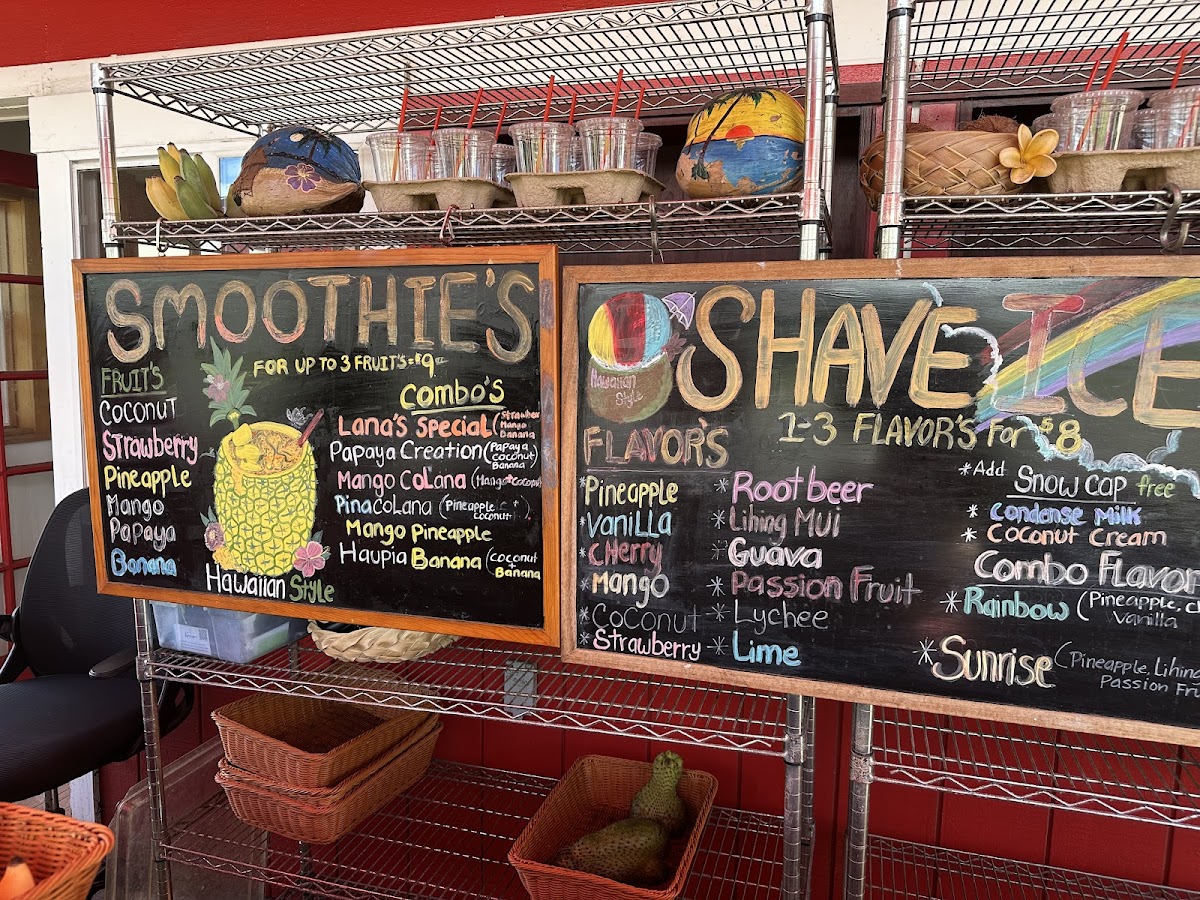 SMOOTHIE'S
FOR UP TO 3 FRUIT'S=$9
FRUIT'S
COCONUT
Strawberry
Pineapple
Mango
Papaya
Banana
Hawaiian Style
Combo's
Lana's Special (Strawber
Mango
Banana
Papaya Creation (Papaya
coconut)
Banana
Mango CoLana (Mango+coconut
PinacoLana (Pineapple +
coconut)
Mango Pineapple
Haupia Banana (coconut
+
Banana
SHAVE ICE
Hawaiian
Style
1-3 FLAVOR'S For $8
FLAVOR'S
*Pineapple
*Vanilla
*CHerry
*Mango
*Coconut
*Strawberry
*Rootbeer
*Lihing Mui
*Guava
*Passion Fruit
*Lychee
*Lime
*Add Snow cap free
*condense milk
*coconut cream
Combo Flavor
*Rainbow (Pineapple, C
Vanilla
*Sunrise (Pineapple, Lihing
Passion Fru